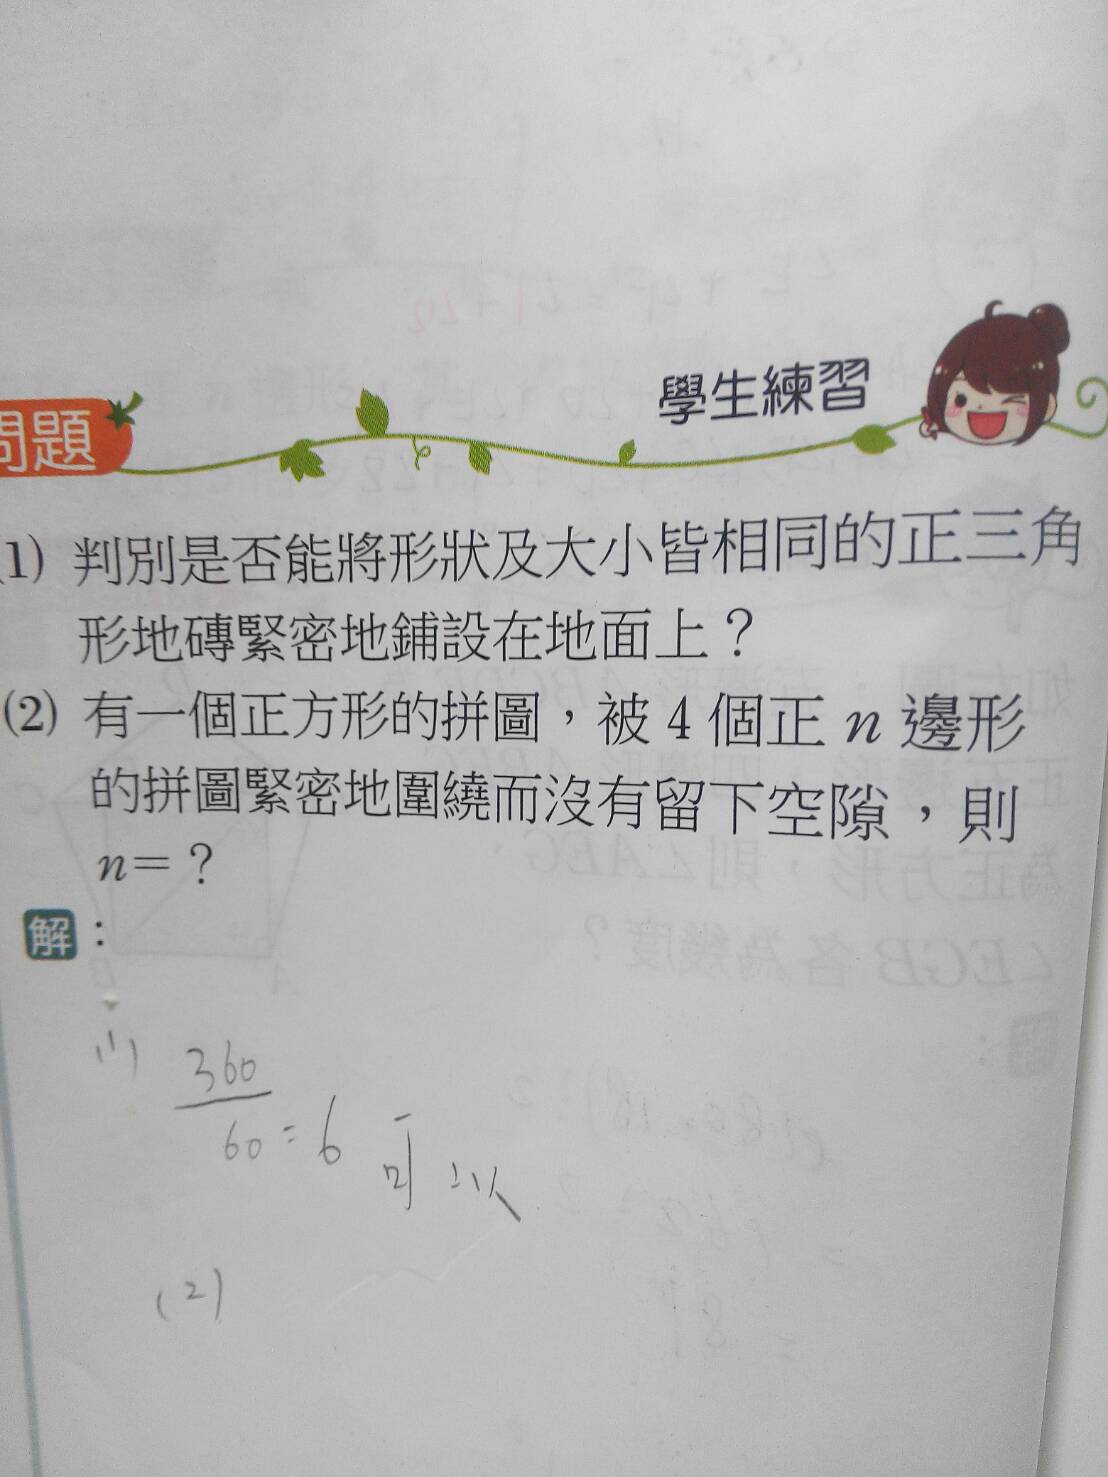 問題
學生練習
(1) 判別是否能將形狀及大小皆相同的正三角
形地磚緊密地鋪設在地面上？
(2) 有一個正方形的拼圖，被 4 個正 n 邊形
的拼圖緊密地圍繞而沒有留下空隙，則
n=？
解：
(1) 360
60 = 6 可以
(2)